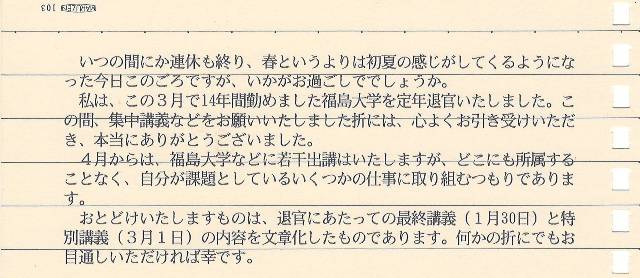 いつの間にか連休も終り、春というよりは初夏の感じがしてくるようにな
った今日このごろですが、いかがお過ごしででしょうか。
私は、この３月で14年間勤めました福島大学を定年退官いたしました。こ
の間、集中講義などをお願いいたしました折には、心よくお引き受けいただ
き、本当にありがとうございました。
４月からは、福島大学などに若干出講はいたしますが、どこにも所属する
ことなく、自分が課題としているいくつかの仕事に取り組むつもりでありま
す。
おとどけいたしますものは、退官にあたっての最終講義（１月30日）と特
別講義（３月１日）の内容を文章化したものであります。何かの折にでもお
目通しいただければ幸です。